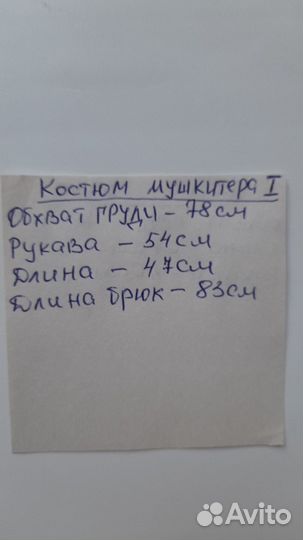 Костюм мушкитера I
Обхват груди - 78см
Рукава - 54см
Длина - 47см
Длина брюк - 83см
Avito